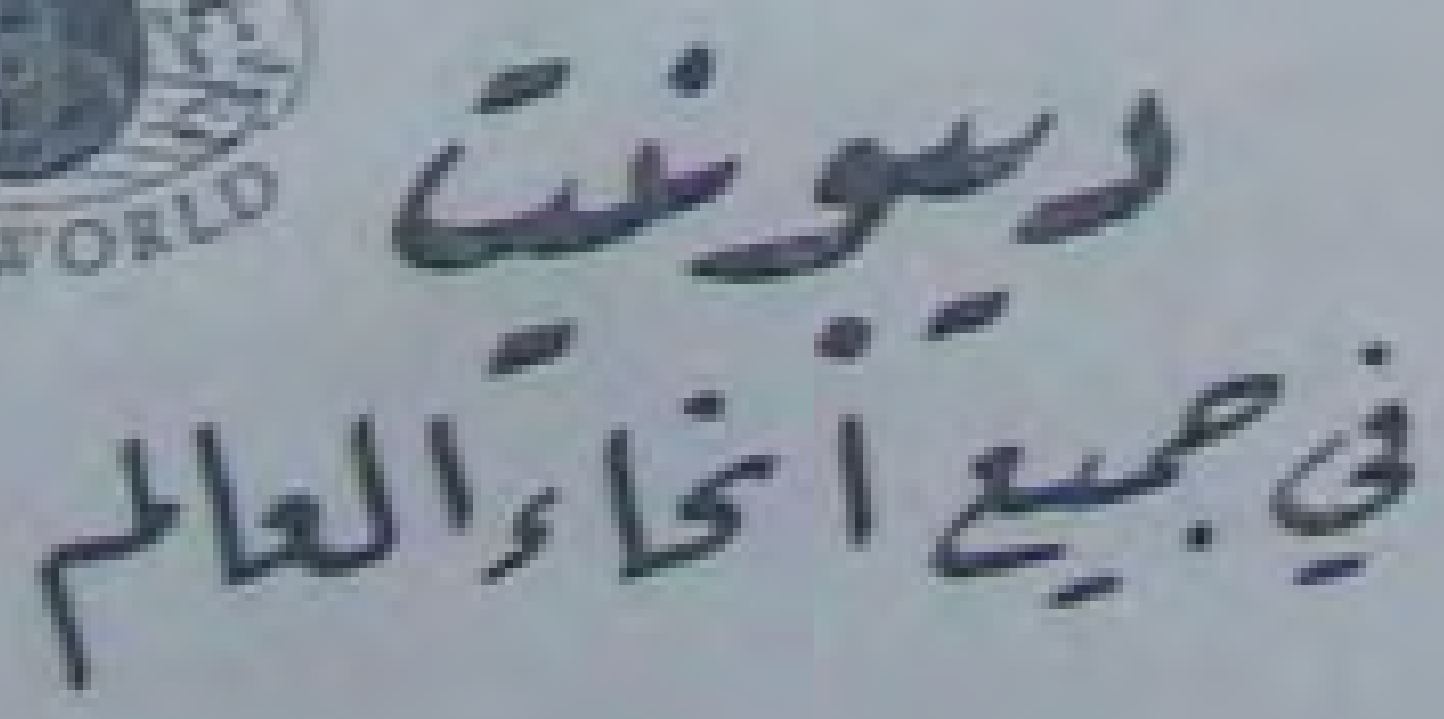 WORLD
ريبونيت
في جميع انحاء العالم